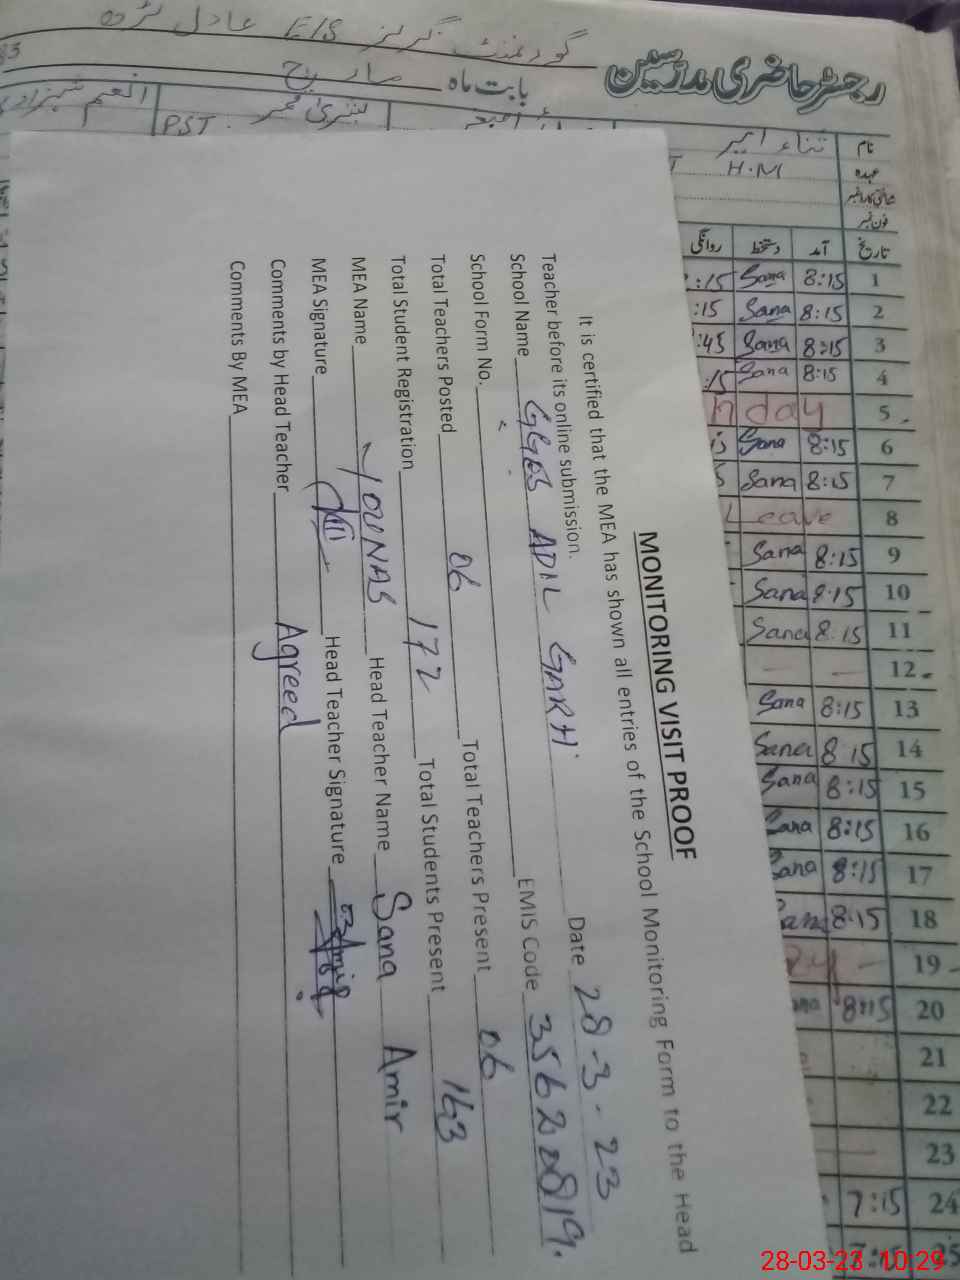 گورنمنٹ گرلز E/S عادل گڑھ
رجسٹر حاضری مدرسین
بابت ماہ مارچ
نام ثناء امیر بشریٰ انعم شہزادی
عہدہ H.M PST
فون نمبر
تاریخ آمد دستخط روانگی
1 8:15 Sana :15
2 8:15 Sana :15
3 8:15 Sana :45
4 8:15 Sana :15
5 day
6 8:15 Sana
7 8:15 Sana
8 Leave
9 8:15 Sana
10 8:15 Sana
11 8:15 Sana
12
13 8:15 Sana
14 8:15 Sana
15 8:15 Sana
16 8:15 Sana
17 8:15 Sana
18 8:15 Sana
19
20 8:15
21
22
23
24 7:15
25 7:15
MONITORING VISIT PROOF
It is certified that the MEA has shown all entries of the School Monitoring Form to the Head
Teacher before its online submission. Date 28-3-23
School Name GGES ADIL GARH EMIS Code 35620819
School Form No.
Total Teachers Posted 06 Total Teachers Present 06
Total Student Registration 172 Total Students Present 163
MEA Name YOUNAS Head Teacher Name Sana Amir
MEA Signature Head Teacher Signature
Comments by Head Teacher Agreed
Comments By MEA
28-03-23 10:29